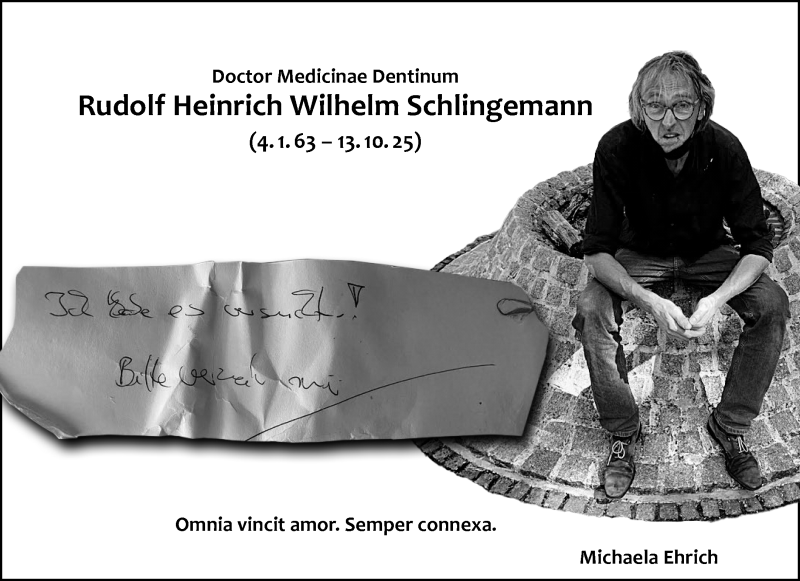 Doctor Medicinae Dentinum
Rudolf Heinrich Wilhelm Schlingemann
(4. 1. 63 – 13. 10. 25)
Ich habe es versucht!
Bitte verzeih mir
Omnia vincit amor. Semper connexa.
Michaela Ehrich